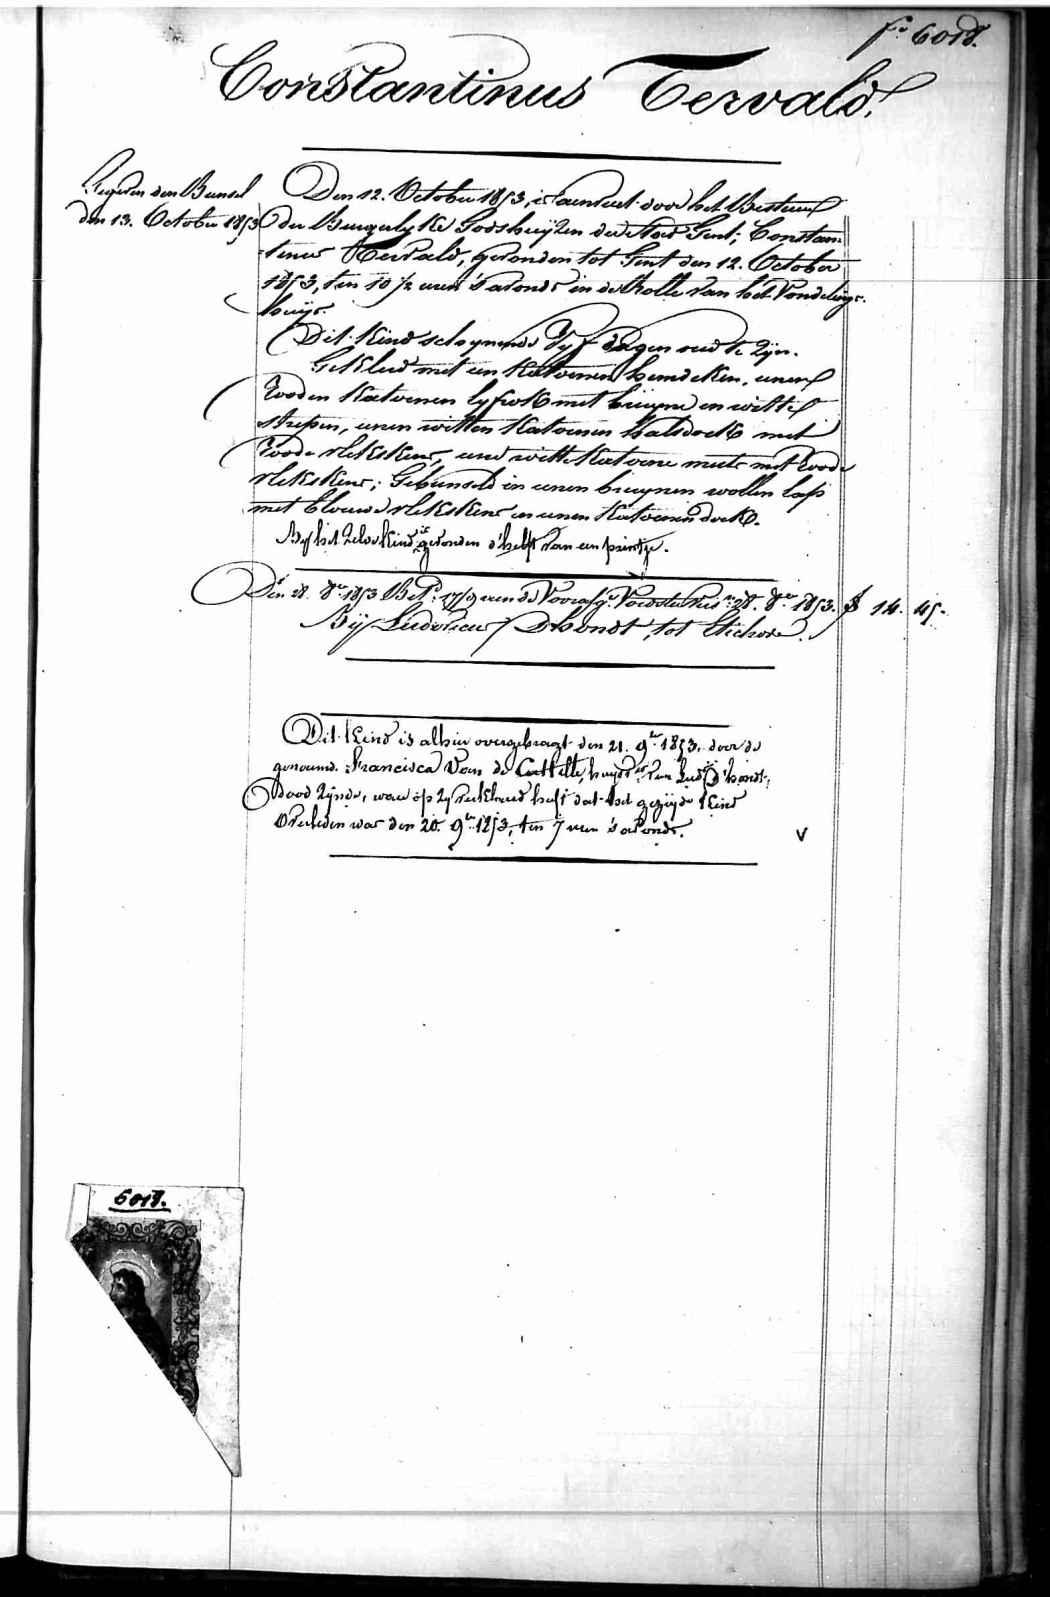 fo 6018.
Constantinus Tervald.
den 13. October 1853
Den 12. October 1853, is aenveert door het Bestuur
der Burgerlyke Godshuyzen der stad Gent; Constan-
tinus Tervald, gevonden tot Gent den 12. October
1853, ten 10 1/2 uren 's avonds in de Rolle van het Vondelings-
huys.
Dit kind schynende Vyf dagen oud te zyn.
Gekleed met een Katoenen hemdeken, eenen
Rooden Katoenen lyfrok met bruyne en witte
strepen, eenen witten Katoenen halsdoek met
roode vlekskens, eene witte Katoene muts met roode
vlekskens; Gebunseld in eenen bruynen wollen lap
met blauwe vlekskens en eenen Katoenen doek.
By het zelve kind is gevonden d'helft van een printje.
Den 28. 8er 1853 28. 8er 1853. 14. 45.
By Ludovicus Dhondt, tot
Dit kind is alhier overgebragt den 21. 9er 1853, door de
genoemde Francisca Van de huysvr van Lud: D'hondt,
dood zynde, waer op zy verklaerd heeft dat het gezeyde kind
Overleden was den 20. 9er 1853, ten 7 uren 's avonds.
V
6018.